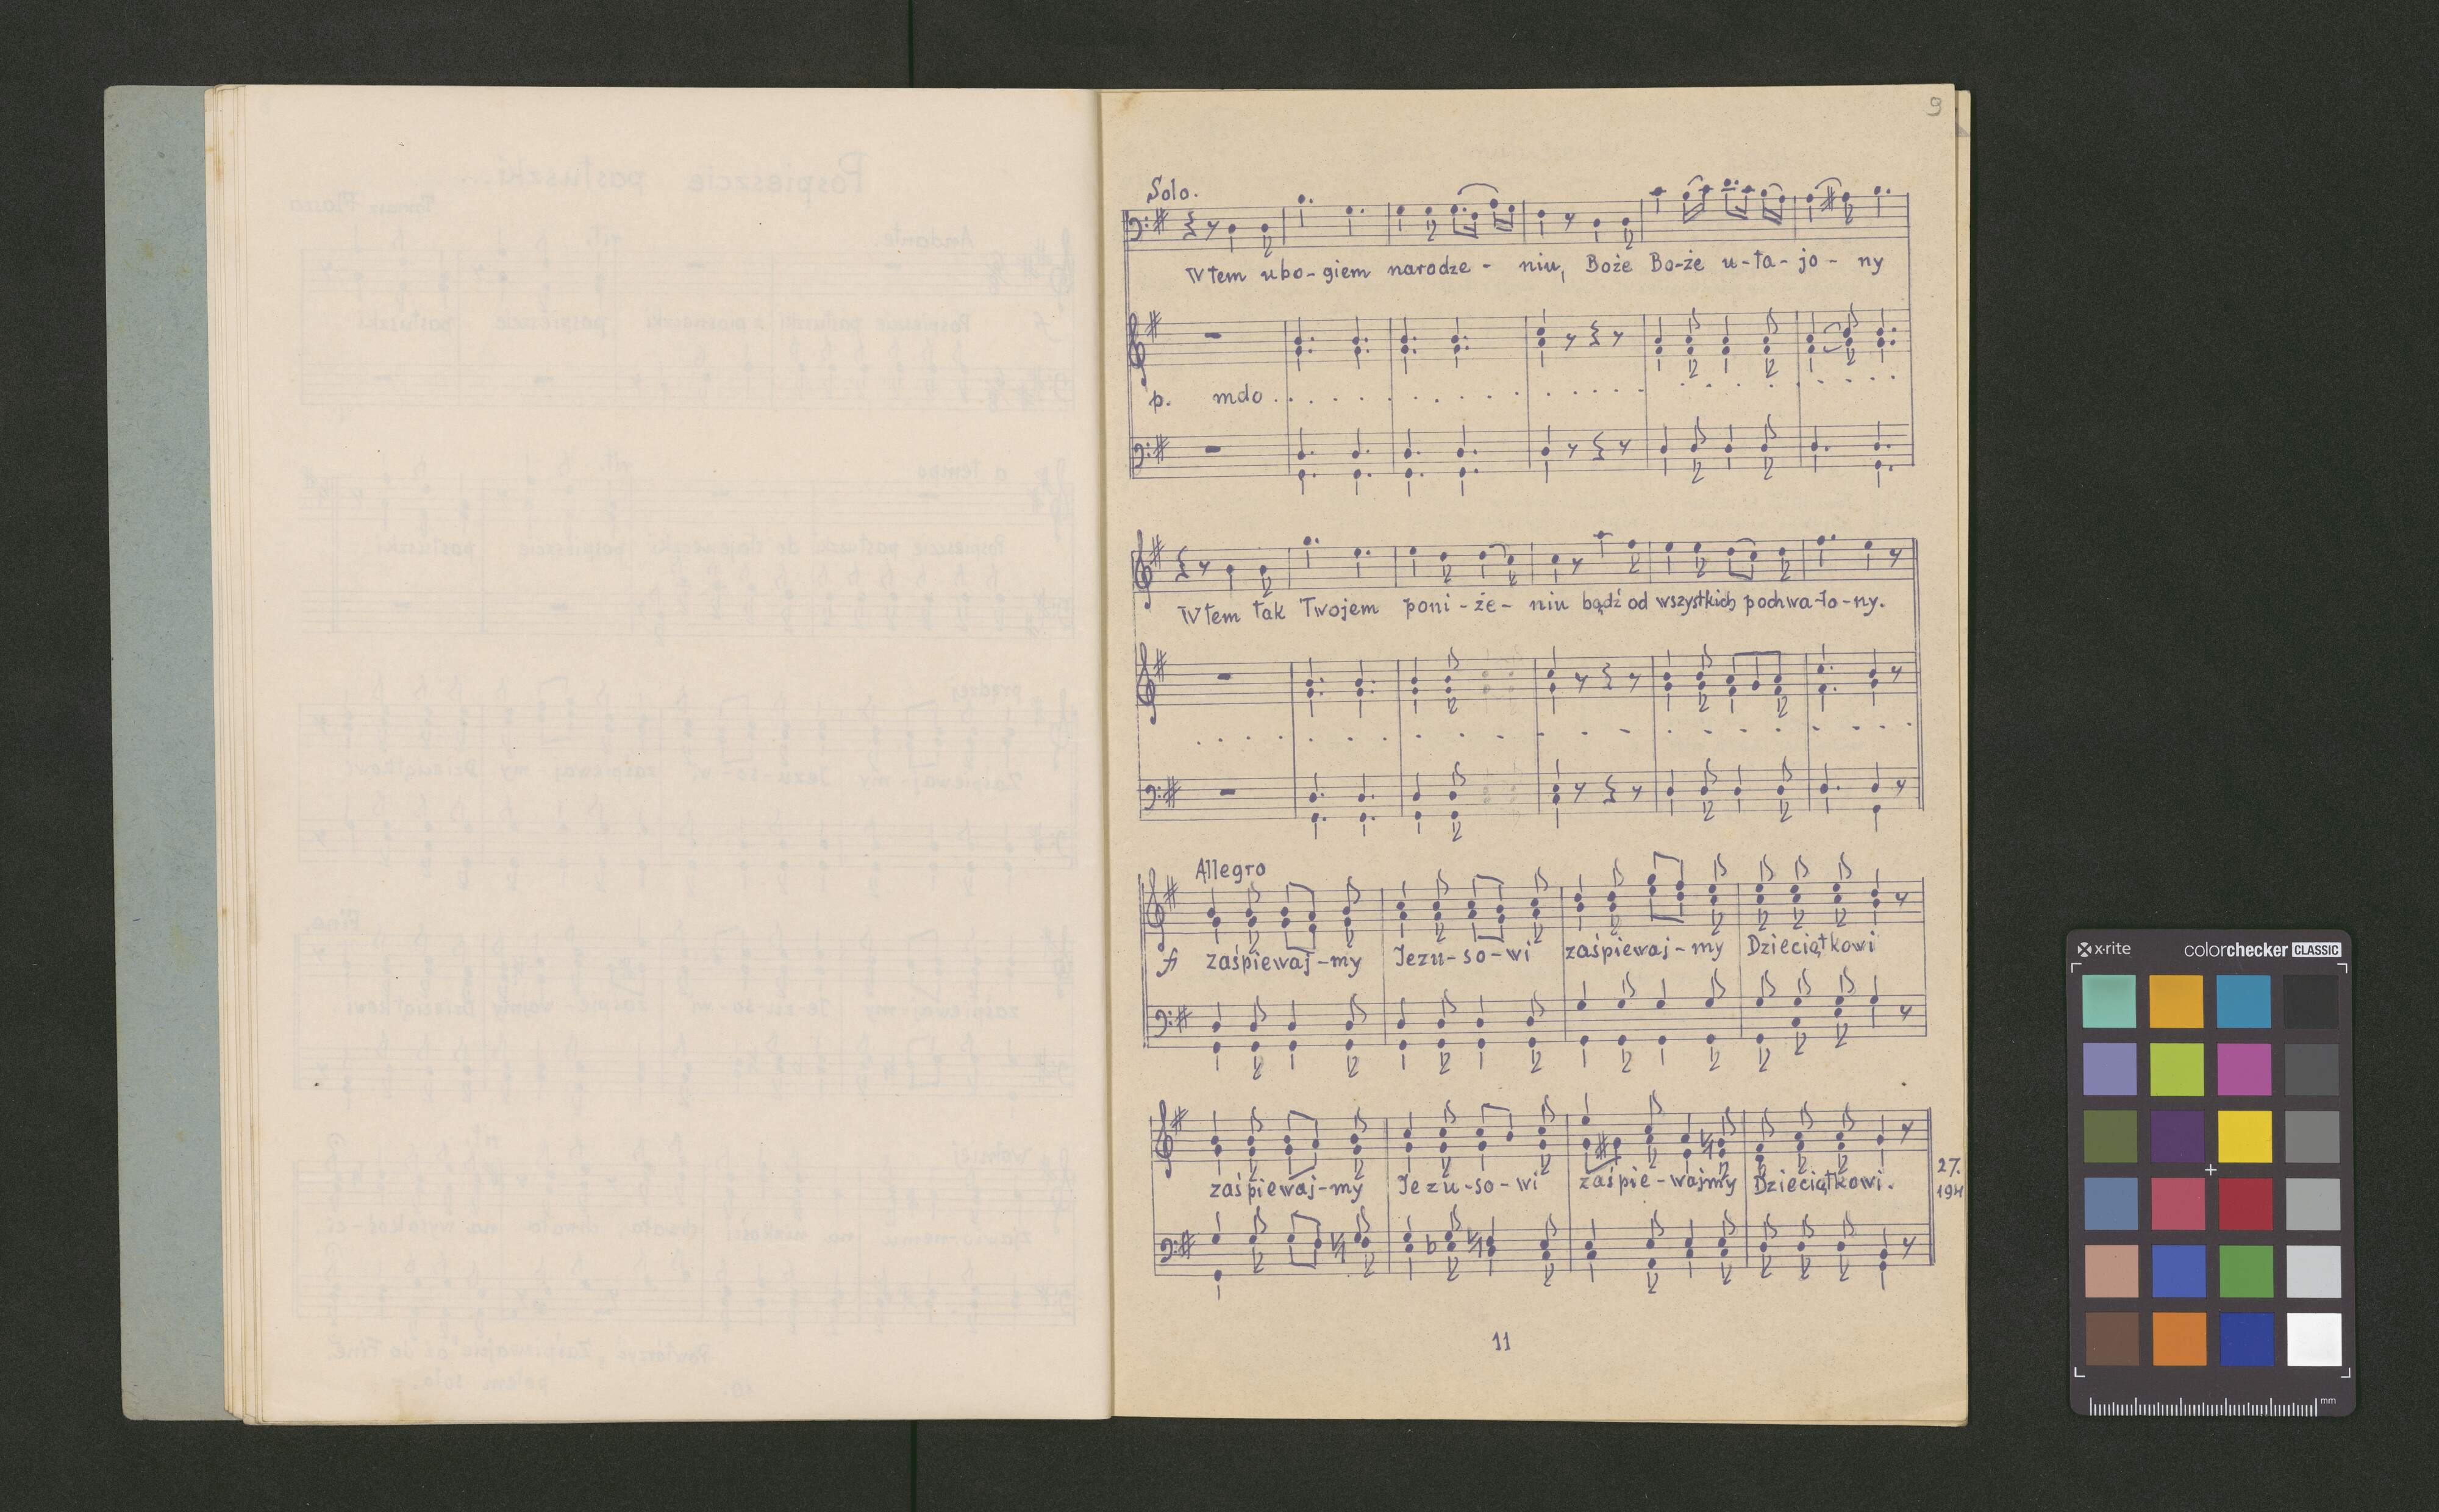 9
Solo.
W tem ubo-giem narodze - niu, Boże Bo-że u-ta-jo - ny
p. mdo . . . . . . . . . . . . . . . . .
W tem tak Twojem poni-że- niu bądź od wszystkich pochwa-lo-ny.
Allegro
f zaśpiewaj-my Jezu-so-wi zaśpiewaj-my Dzieciątkowi
zaśpiewaj-my Jezu-so-wi zaśpie-wajmy Dzieciątkowi.
27.
194
11
x·rite colorchecker CLASSIC
mm